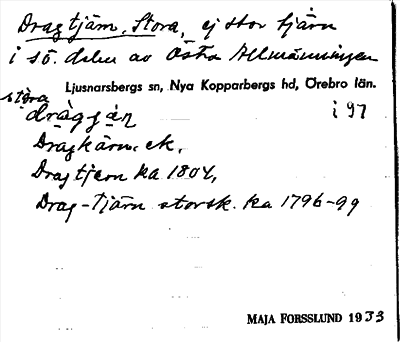 Dragtjärn, Stora, ej stor tjärn
i sö. delen av Östra Allmänningen
Ljusnarsbergs sn, Nya Kopparbergs hd, Örebro län.
stora
dràggɑ̀n i 97
Dragkärn. ek.
Dragtjern ka 1804,
Drag-Tjärn storsk. ka 1796-99
MAJA FORSSLUND 1933